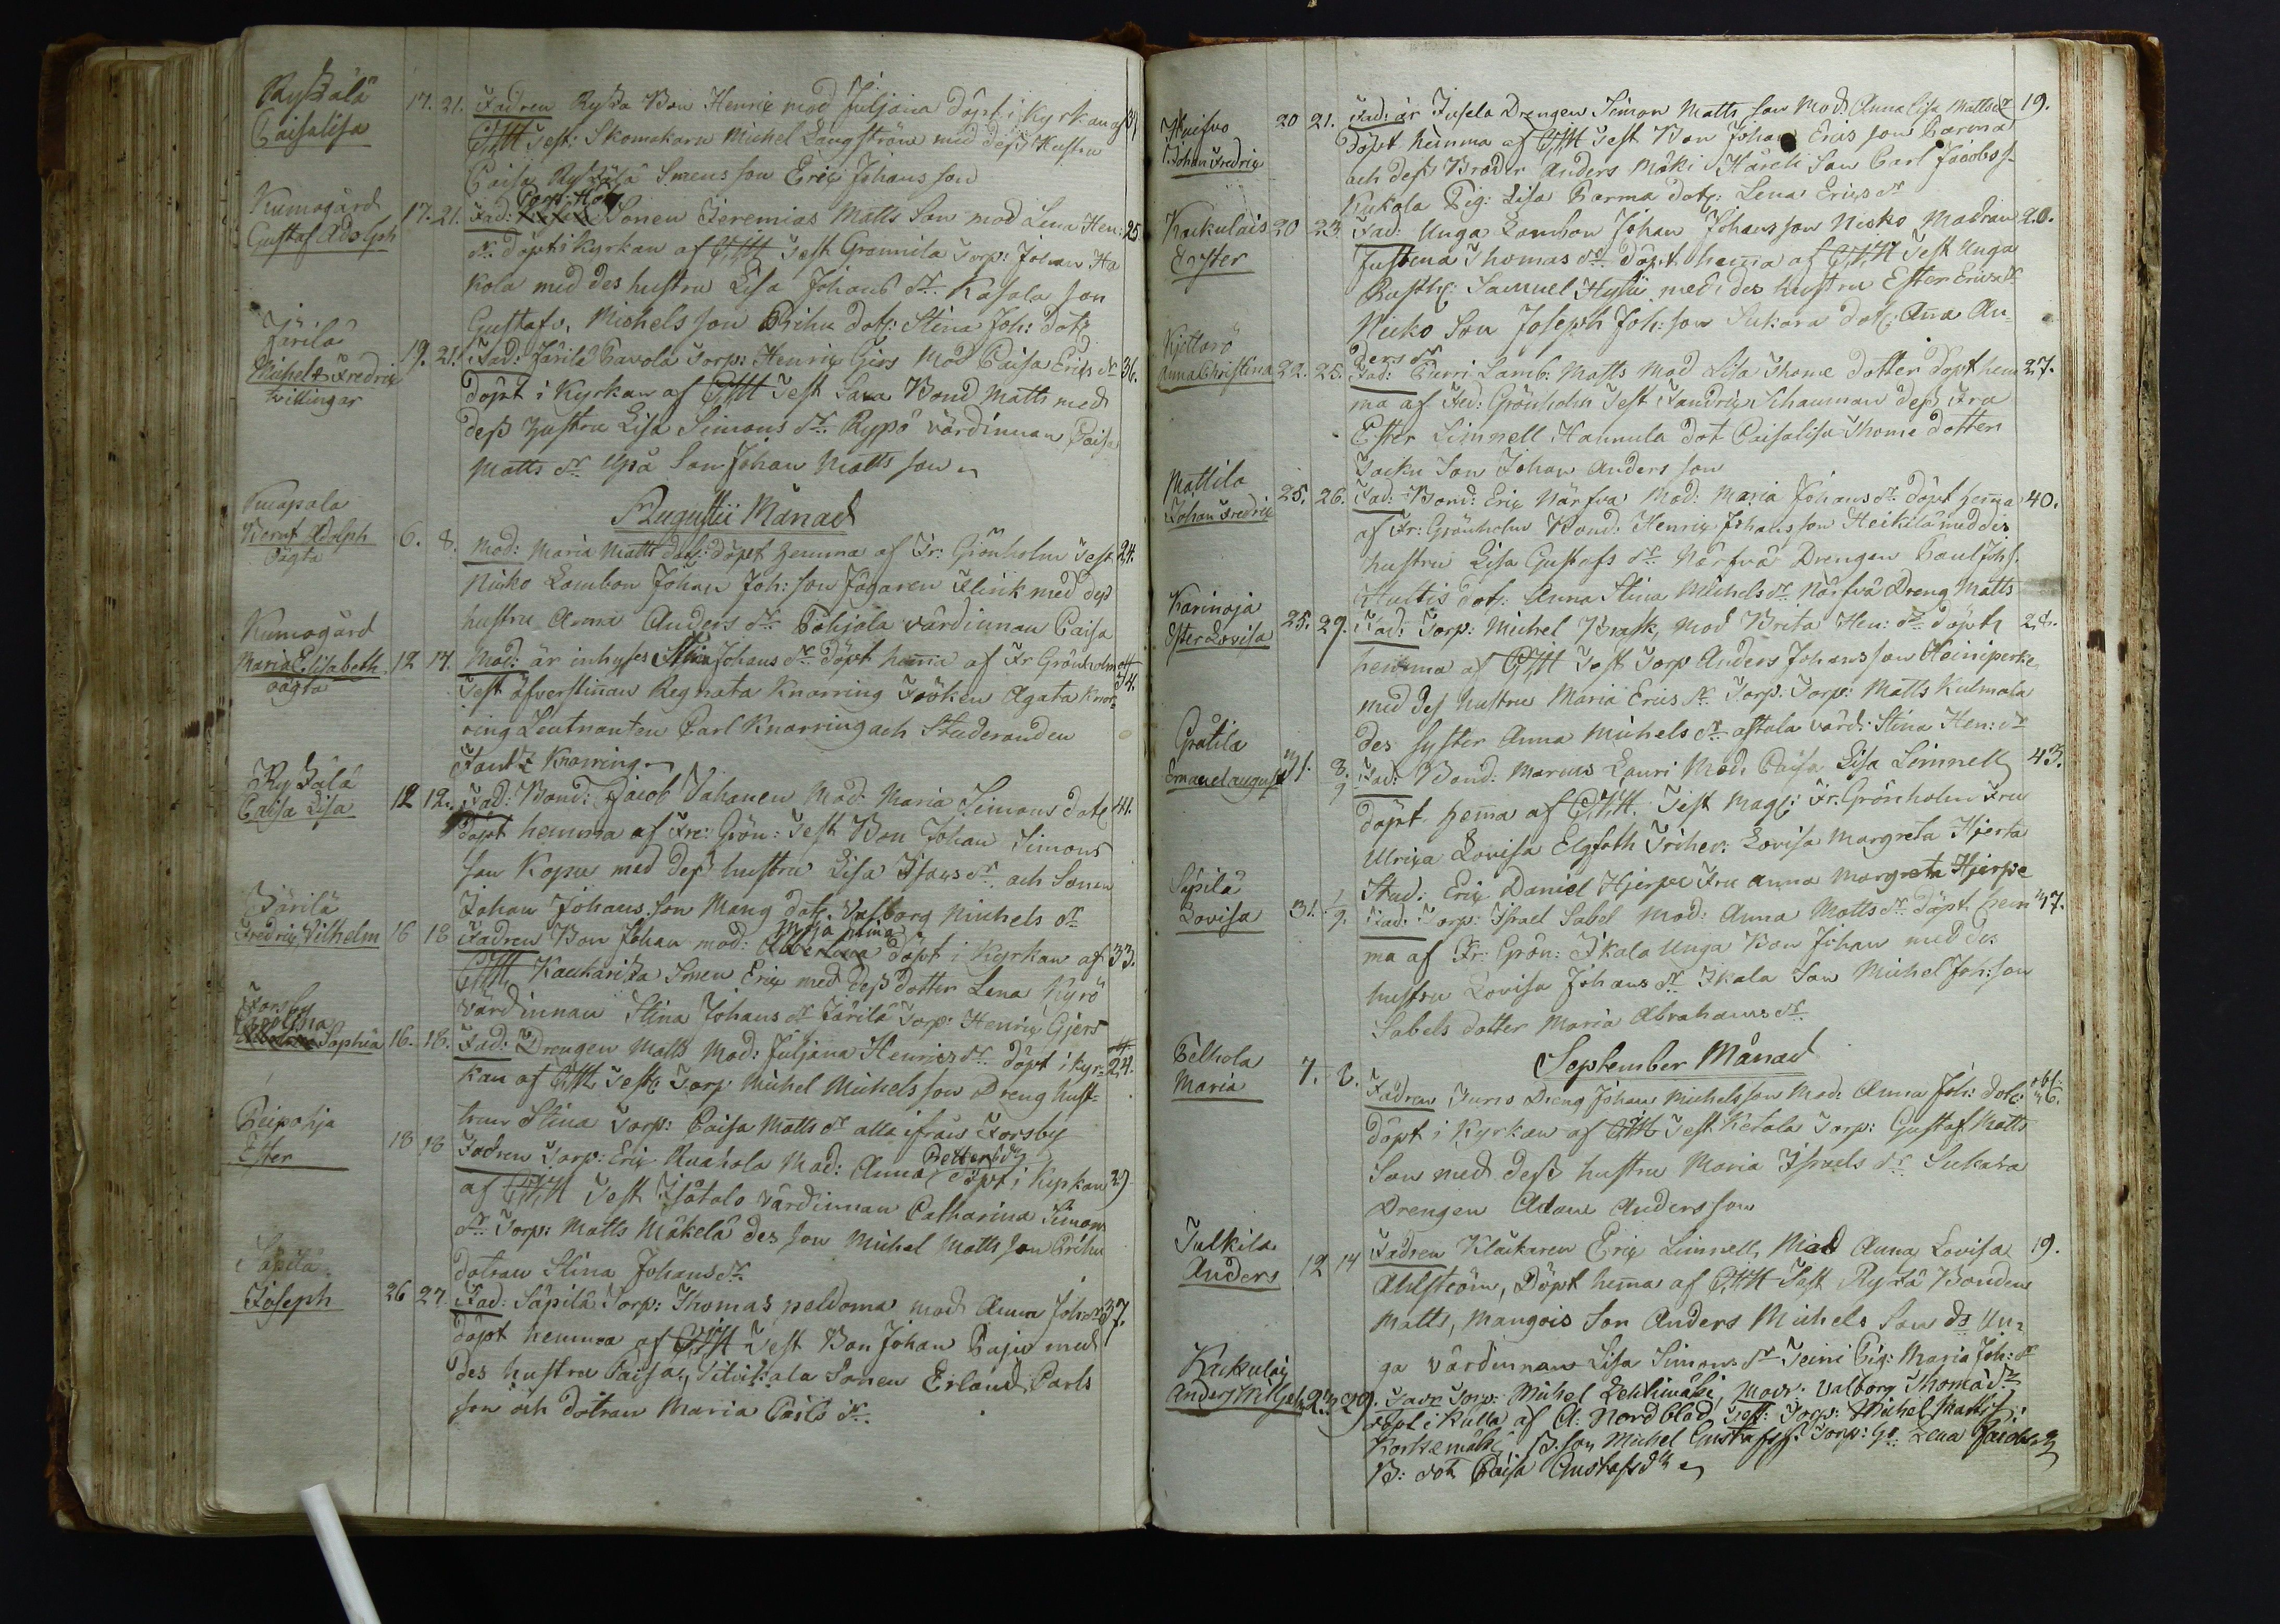 Ryßälä
Caisalisa
17. 21. Fadren Ryßä Bon Henric mod Juljana döpt i Kyrkan af
Test: Skomakarn Michel Langström med deß Hustru
Caisa Ryßälä Smens son Eric Johans son
Kumogård
Gustaf Adolph
17. 21. Fad: Sonen Jeremias Matts Son mod Lena Hen: 25
dr döpt i Kyrkan af Test Grannila Torp: Johan Ha
kola med des hustru Lisa Johans dr Kasala son
Gustafv, Michels son Prihu dotr: Stina Joh: dotr
Järilä
Michel & Fredric
tvillingar
19. 21. Fad: Järilä Pavola Torp: Henric Gers Mod Caisa Erics dr 36.
döpt i Kyrkan af Test Bond Matts med
deß hustru Lisa Simons dr Rypö värdinnan Caisa
Matts dr Son Johan Matts son
Augustii Månad
Knapola
Bernt Adolph
oägta
6. 8. Mod: Maria Matts dotr: döpt hemma af Fr: Grönholm Test 24.
Nicko Lamb​on Johan Joh: son Jägaren Flink med deß
hustru Anna Anders dr Pohjola värdinnan Caisa
Kumogård
Maria Elisabeth
oägta
12 14. Mod: är inhyses Stina Johans dr döpt hemma af Fr Grönholm 34.
Test öfverstinnan Regnata Knorring Fröken Agata Knor
ring Leutnanten Carl Knorring och Studeranden
Frantz Knorring
Ryßälä
Caisa Lisa
12 12. Fad: Bond: Jacob Vahanen Mod Maria Simons dotr 41.
döpt hemma af Fr: Grön: Test Bon Johan Simons
son Kopu med deß hustru Lisa Isacs dr och Sonen
Johan Johans son Mang dotr. Valborg Michels dr
Järilä
Fredric Vilhelm
16 18 Fadren Bon Johan mod: döpt i Kyrkan af 33.
Kauharißa Smen Eric med deß dotter Lena Kyrö
värdinnan Stina Johans dr Järilä Torp: Henric Gjers
Forsby
Sophia
16. 18. Fad: Drengen Matts Mod: Juljana Henrics dr döpt i Kyr= 24.
kan af Test: Torp Michel Michels son Dreng hust=
trun Stina Torp: Caisa Matts dr alla ifrån Forsby
Peipohja
Ester
18 18 Fadren Torp: Eric Ruohola Mod: Anna Petters dr döpt i Kyrkan 29
af Test Isotalo värdinnan Catharina Simons
dr Torp: Matts Mäkelä des son Michel Matts son Prihu
dotran Stina Johans dr
Säpilä
Joseph
26 27. Fad: Säpilä Torp: Thomas peldoma mod Anna Joh: dr 37.
döpt hemma af Test Bon Johan Paju med
des hustru Caisa, Sonen Erland Carls
son och dotran Maria Carls dr.
Huifvo
Johan Fredric
20 21. Fad: är Jusela Drengen Simon Matts son Mod: Anna Lisa Matts dr 19.
döpt hemma af Test Bon Johan Erics son Parma
och deß Broder Anders Mäki Härcki Son Carl Jacobs s.
Kukola Pig: Lisa Parma dotr: Lena Erics dr
Kaukulais
Ester
20 23 Fad: Unga Lambon Johan Johans son Nicko Modran 20.
Justina Thomas dr döpt hemma af Test Unga
Rusth: Samuel Hyhi med des hustru Ester Erics dr
Nicko Son Joseph Joh: son Sukara dotr: Anna An=
ders dr
Kjettarö
Anna Christina
22. 25. Fad: Lamb: Matts Mod Lisa Thome dotter döpt hem 27.
ma af Fred: Grönholm Test Fendric Schauman deß Fru
Ester Limnell Hannula dot Caisalisa Thome dotter
Jacku Son Johan Anders son
Mattila
Johan Fredric
25. 26. Fad: Bond: Eric Närfvä Mod: Maria Johans dr döpt hemma 40.
af Fr: Grönholm Bond: Henric Johans son Heikilä med des
hustru Lisa Gustafs dr Närfvä Drengen Paul Joh s.
dotr: Anna Stina Michels dr Närfvä Dreng Matts
Karinoja
Ester Lovisa
25. 29. Fad: Torp: Michel Brask, mod Brita Hen: dr döpt 28.
hemma af Test Torp Anders Johans son Heiniperke
med des hustru Maria Erics dr Torp: Torp: Matts Kulmala
des syster Anna Michels dr värd: Stina Hen: dr
Gratila
Emanel August
Fad: Bond: Marcus Lauri Mod: Caisa Lisa Limnell 43.
döpt hemma af Test Mag: Fr: Grönholm Fru
Ulrica Lovisa Elgfoth Friher: Lovisa Margreta Hjerta
Stud: Eric Daniel Hjerpe Fru Anna Margreta Hjerpe
Säpilä
Lovisa
31. 1/9. Fad: Torp: Israel Sabel Mod: Anna Matts dr döpt hem 47.
ma af Fr: Grön: Ikala Unga Bon Johan med des
hustru Lovisa Johans dr Ikala Son Michel Joh: son
Sabels dotter Maria Abrahams dr
September Månad
Pelhola
Maria
7. 8. Fadren Juus Dreng Johan Michels son Mod: Anna Joh: dotr:
döpt i Kyrkan af Test Ketala Torp: Gustaf Matts
Son med deß hustru Maria Israels dr Sukara
Drengen Adam Anders son
Tulkila
Anders
12 14 Fadren Klockaren Eric Limnell, Mod Anna Lovisa 19.
Ahlström, Döpt hemma af Test Ryßä Bonden
Matts, Mangois Son Anders Michels Son ds Un=
ga värdinnan Lisa Simons dr Teini Pig: Maria Joh: dr
Kaukulais
Anders Mikjel
23 29. Fadr Torp: Michel Lehtimäki, Modr: Valborg Thomæ dr
döpt i Kulla af A: Nordblad, Test: Torp: Michel Matts s.
Korkemäki, B. son Michel Gustafs s. Torp: H: Lena Jacobs dr
B: dotr Caisa Gustafs dr